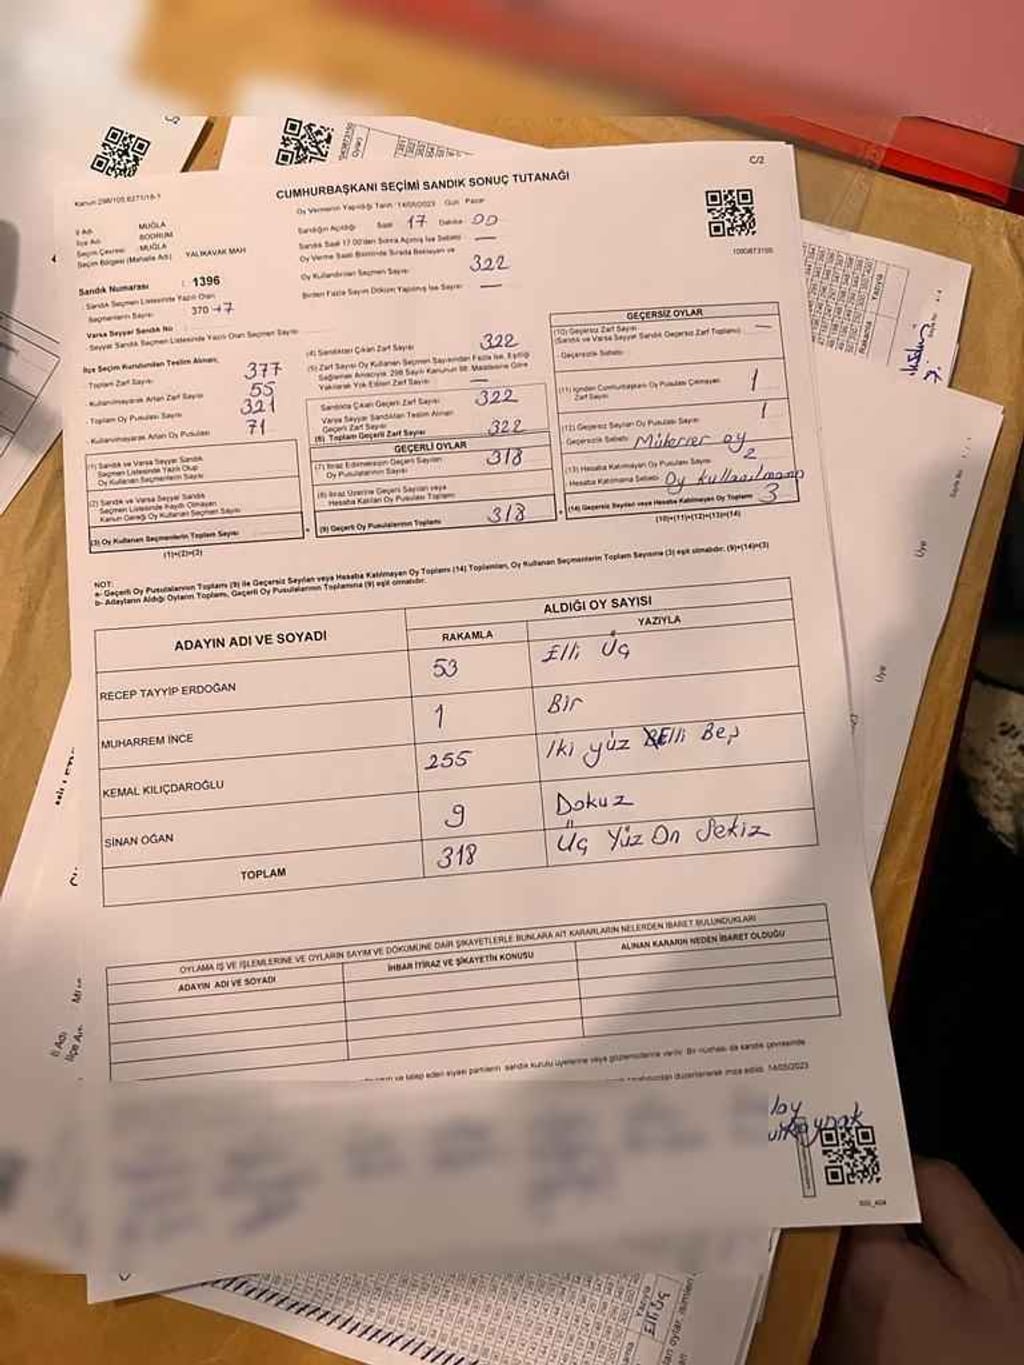 C/2
Kanun 298/105 6271/16-1
CUMHURBAŞKANI SEÇİMİ SANDIK SONUÇ TUTANAĞI
Oy Vermenin Yapıldığı Tarih : 14/05/2023 Gün : Pazar
İl Adı : MUĞLA
İlçe Adı : BODRUM
Seçim Çevresi : MUĞLA
Seçim Bölgesi (Mahalle Adı) : YALIKAVAK MAH
Sandığın Açıldığı Saat 17 Dakika 00
Sandık Saat 17.00'den Sonra Açılmış İse Sebebi —
Oy Verme Saati Bitiminde Sırada Bekleyen ve
Oy Kullandırılan Seçmen Sayısı 322
Birden Fazla Sayım Döküm Yapılmış İse Sayısı —
1000873100
Sandık Numarası : 1396
Sandık Seçmen Listesinde Yazılı Olan
Seçmenlerin Sayısı : 370 +7
Varsa Seyyar Sandık No
Seyyar Sandık Seçmen Listesinde Yazılı Olan Seçmen Sayısı
İlçe Seçim Kurulundan Teslim Alınan;
Toplam Zarf Sayısı 377
Kullanılmayarak Artan Zarf Sayısı 55
Toplam Oy Pusulası Sayısı 321
Kullanılmayarak Artan Oy Pusulası 71
(1) Sandık ve Varsa Seyyar Sandık
Seçmen Listesinde Yazılı Olup
Oy Kullanan Seçmenlerin Sayısı
(2) Sandık ve Varsa Seyyar Sandık
Seçmen Listesinde Kayıtlı Olmayan
Kanun Gereği Oy Kullanan Seçmen Sayısı
(3) Oy Kullanan Seçmenlerin Toplam Sayısı
(1)+(2)=(3)
(4) Sandıktan Çıkan Zarf Sayısı 322
(5) Zarf Sayısı Oy Kullanan Seçmen Sayısından Fazla İse, Eşitliği
Sağlamak Amacıyla 298 Sayılı Kanunun 98. Maddesine Göre
Yakılarak Yok Edilen Zarf Sayısı —
Sandıkta Çıkan Geçerli Zarf Sayısı 322
Varsa Seyyar Sandıktan Teslim Alınan
Geçerli Zarf Sayısı
(6) Toplam Geçerli Zarf Sayısı 322
GEÇERLİ OYLAR
(7) İtiraz Edilmeksizin Geçerli Sayılan
Oy Pusulalarının Sayısı 318
(8) İtiraz Üzerine Geçerli Sayılan veya
Hesaba Katılan Oy Pusulası Toplamı
(9) Geçerli Oy Pusulalarının Toplamı 318
GEÇERSİZ OYLAR
(10) Geçersiz Zarf Sayısı —
(Sandık ve Varsa Seyyar Sandık Geçersiz Zarf Toplamı)
Geçersizlik Sebebi
(11) İçinden Cumhurbaşkanı Oy Pusulası Çıkmayan
Zarf Sayısı 1
(12) Geçersiz Sayılan Oy Pusulası Sayısı 1
Geçersizlik Sebebi Mükerrer oy
(13) Hesaba Katılmayan Oy Pusulası Sayısı 2
Hesaba Katılmama Sebebi Oy kullanılmamış
(14) Geçersiz Sayılan veya Hesaba Katılmayan Oy Toplamı 3
(10)+(11)+(12)+(13)=(14)
NOT:
a- Geçerli Oy Pusulalarının Toplamı (9) ile Geçersiz Sayılan veya Hesaba Katılmayan Oy Toplamı (14) Toplamları, Oy Kullanan Seçmenlerin Toplam Sayısına (3) eşit olmalıdır. (9)+(14)=(3)
b- Adayların Aldığı Oyların Toplamı, Geçerli Oy Pusulalarının Toplamına (9) eşit olmalıdır.
ADAYIN ADI VE SOYADI
ALDIĞI OY SAYISI
RAKAMLA YAZIYLA
RECEP TAYYİP ERDOĞAN 53 Elli Üç
MUHARREM İNCE 1 Bir
KEMAL KILIÇDAROĞLU 255 İki yüz Elli Beş
SİNAN OĞAN 9 Dokuz
TOPLAM 318 Üç Yüz On Sekiz
OYLAMA İŞ VE İŞLEMLERİNE VE OYLARIN SAYIM VE DÖKÜMÜNE DAİR ŞİKAYETLERLE BUNLARA AİT KARARLARIN NELERDEN İBARET BULUNDUKLARI
ADAYIN ADI VE SOYADI
İHBAR İTİRAZ VE ŞİKAYETİN KONUSU
ALINAN KARARIN NEDEN İBARET OLDUĞU
ve talep eden siyasi partilerin sandık kurulu üyelerine veya gözlemcilerine verilir. Bir nüshası da sandık çevresinde
düzenlenerek imza edildi. 14/05/2023
İl Adı
Üye
Üye
Yazıyla
Rakamla